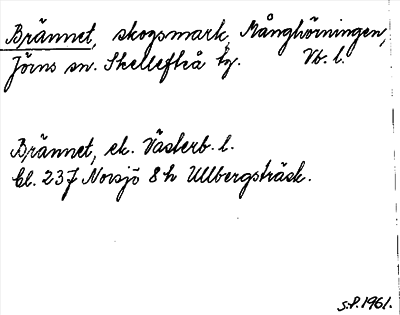 Brännet, skogsmark, Månghörningen,
Jörns sn. Skellefteå tg. Vb. l.
Brännet, ek. Västerb. l.
Bl. 237 Norsjö 8 h Ullbergsträsk.
S.P. 1961.